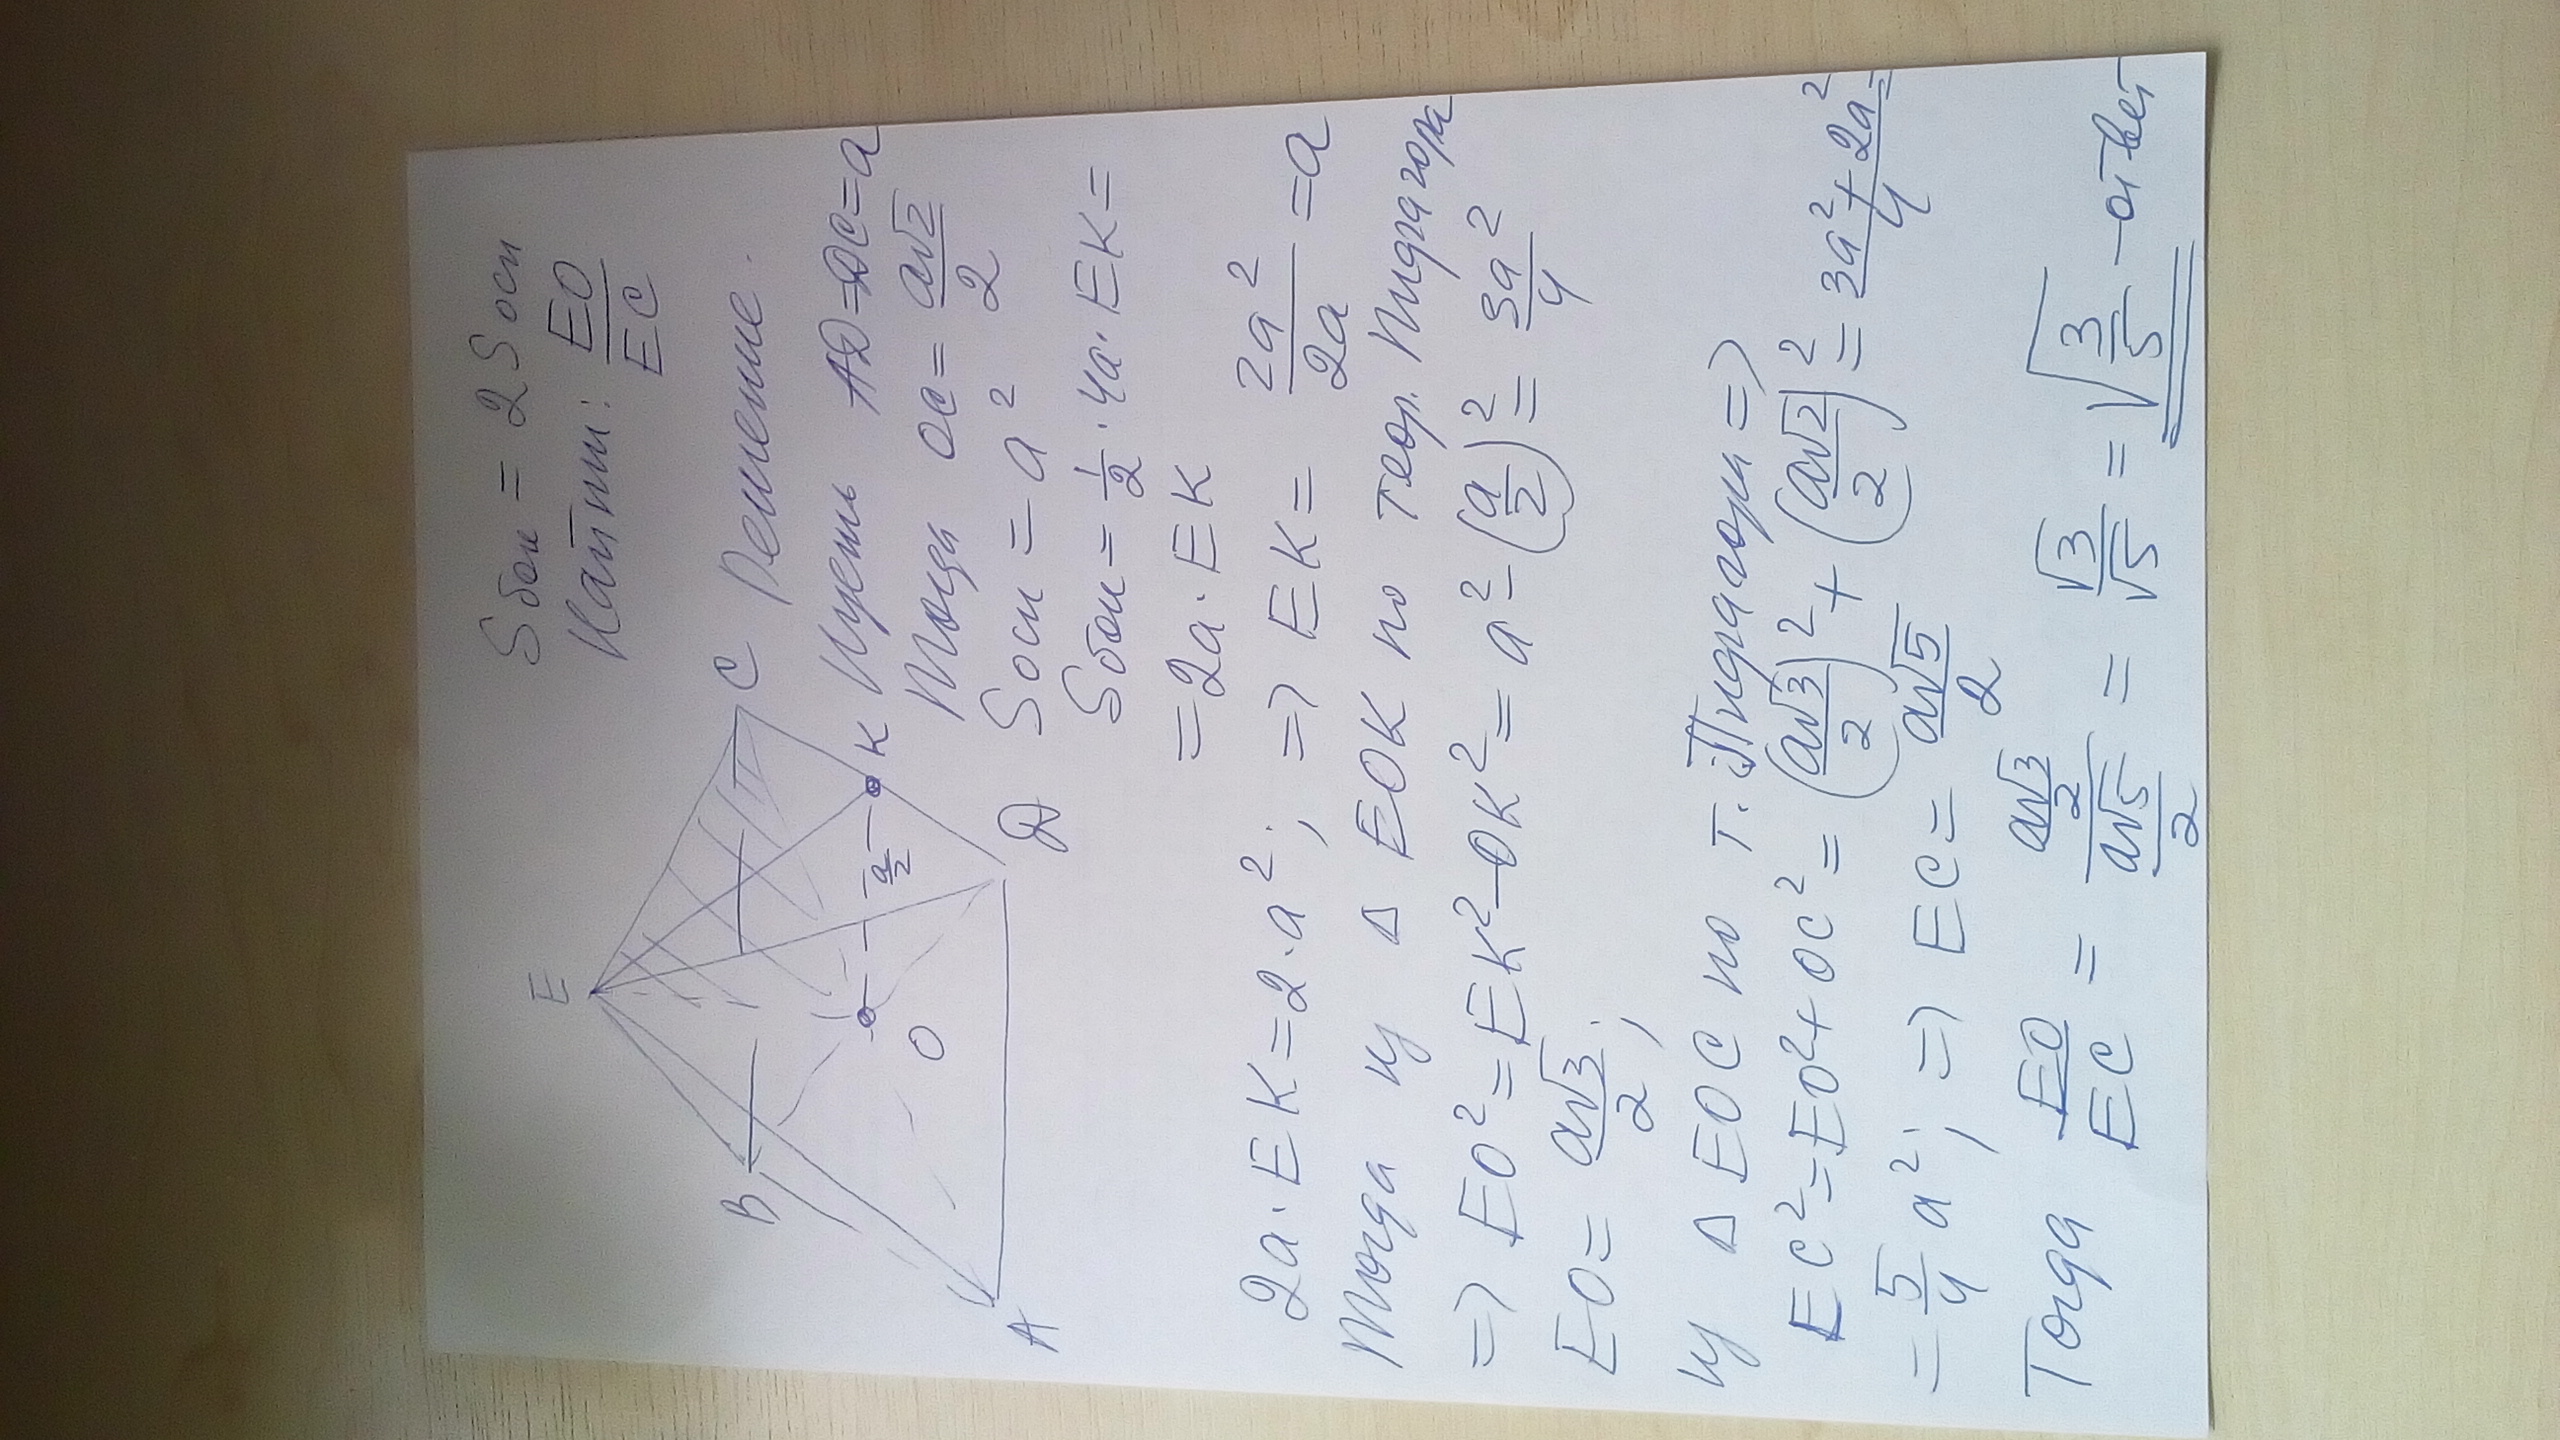 Sбок = 2 Sосн
Найти: EO/EC
E
B
C
K
a/2
O
A
D
Решение.
Пусть AD=DC=a
Тогда OC = a√2/2
Sосн = a²
Sбок = 1/2 · 4a · EK =
= 2a · EK
2a · EK = 2 · a²; => EK = 2a²/2a = a
Тогда из Δ EOK по теор. Пифагора
=> EO² = EK² - OK² = a² - (a/2)² = 3a²/4
EO = a√3/2;
из Δ EOC по т. Пифагора =>
EC² = EO² + OC² = (a√3/2)² + (a√2/2)² = 3a² + 2a²/4 =
= 5/4 a²; => EC = a√5/2
Тогда EO/EC = a√3/2 / a√5/2 = √3/√5 = √3/5 - ответ